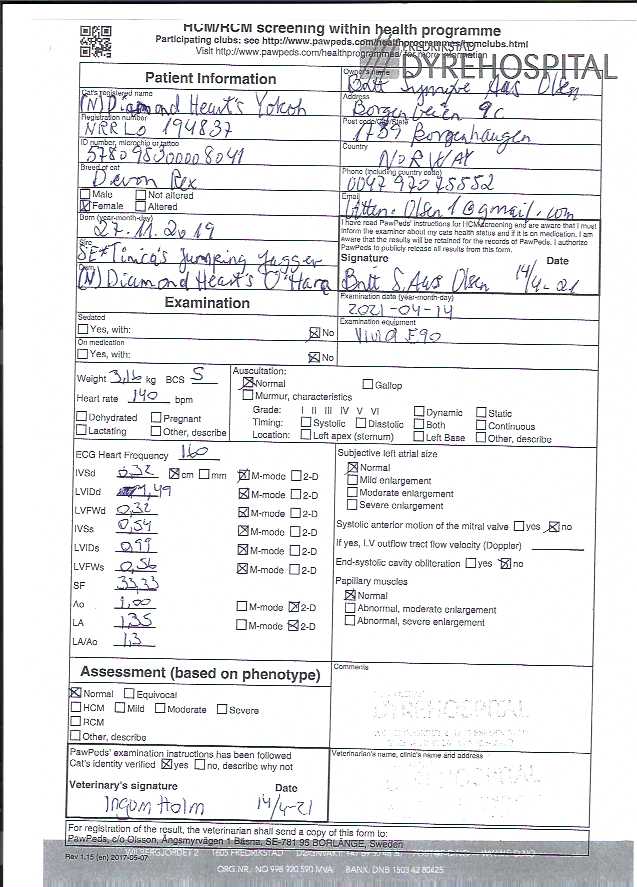 HCM/RCM screening within health programme
Participating clubs: see http://www.pawpeds.com/healthprogrammes/hcmclubs.html
Visit http://www.pawpeds.com/healthprogrammes/ for more information
FREDRIKSTAD
DYREHOSPITAL
Patient Information
Cat's registered name
(N) Diamond Heart's Yokoh
Registration number
NRR LO 194837
ID number, microchip or tattoo
578095300008041
Breed of cat
Devon Rex
Male Not altered
Female Altered
Born (year-month-day)
27.11.2019
Sire
SE*Timica's Jumping Jagger
Dam
(N) Diamond Heart's O'Hara
Owner's name
Britt Synnøve Aas Olsen
Address
Borgenveien 9c
Post code/City/State
1739 Borgenhaugen
Country
NORWAY
Phone (including country code)
0047 97075552
Email
1@gmail.com
I have read PawPeds' instructions for HCM screening and are aware that I must
inform the examiner about my cats health status and if it is on medication. I am
aware that the results will be retained for the records of PawPeds. I authorize
PawPeds to publicly release all results from this form.
Signature Date
Britt S. Aas Olsen 14/4-21
Examination
Sedated
Yes, with: No
On medication
Yes, with: No
Examination date (year-month-day)
2021-04-14
Examination equipment
Vivid E90
Weight 3,16 kg BCS 5
Heart rate 140 bpm
Dehydrated Pregnant
Lactating Other, describe
Auscultation:
Normal Gallop
Murmur, characteristics
Grade: I II III IV V VI Dynamic Static
Timing: Systolic Diastolic Both Continuous
Location: Left apex (sternum) Left Base Other, describe
ECG Heart Frequency 160
IVSd 0,32 cm mm M-mode 2-D
LVIDd 1,49 M-mode 2-D
LVFWd 0,32 M-mode 2-D
IVSs 0,54 M-mode 2-D
LVIDs 0,99 M-mode 2-D
LVFWs 0,56 M-mode 2-D
SF 33,33
Ao 1,00 M-mode 2-D
LA 1,35 M-mode 2-D
LA/Ao 1,3
Subjective left atrial size
Normal
Mild enlargement
Moderate enlargement
Severe enlargement
Systolic anterior motion of the mitral valve yes no
If yes, LV outflow tract flow velocity (Doppler)
End-systolic cavity obliteration yes no
Papillary muscles
Normal
Abnormal, moderate enlargement
Abnormal, severe enlargement
Assessment (based on phenotype)
Normal Equivocal
HCM Mild Moderate Severe
RCM
Other, describe
Comments
DYREHOSPITAL
PawPeds' examination instructions has been followed
Cat's identity verified yes no, describe why not
Veterinary's signature Date
Ingum Holm 14/4-21
Veterinarian's name, clinic's name and address
DYREHOSPITAL
For registration of the result, the veterinarian shall send a copy of this form to:
PawPeds, c/o Olsson, Ängsmyrvägen 1 Bäsna, SE-781 95 BORLÄNGE, Sweden
Rev 1.15 (en) 2017-05-07
ORG.NR. NO 998 920 590 MVA BANK. DNB 1503 42 80425